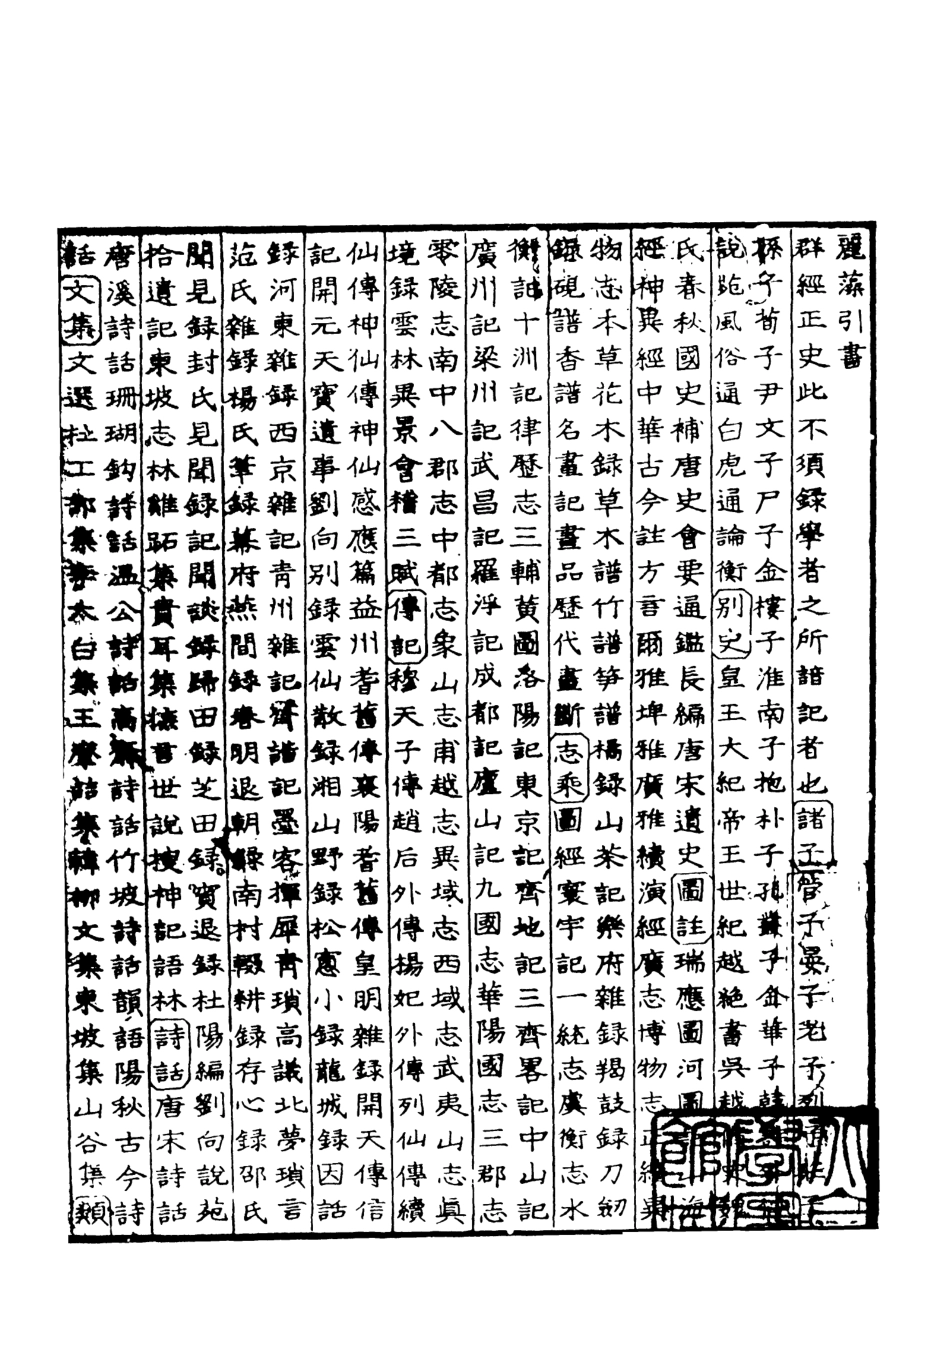 麗藻引書
群經正史此不須録學者之所諳記者也諸子管子晏子老子列子莊子
孫子荀子尹文子尸子金樓子淮南子抱朴子孔叢子金華子韓
說苑風俗通白虎通論衡别史皇王大紀帝王世紀越絶書吳越
氏春秋國史補唐史會要通鑑長編唐宋遺史圖註瑞應圖河圖海
經神異經中華古今註方言爾雅埤雅廣雅續演經廣志博物志
物志本草花木録草木譜竹譜笋譜橘録山茶記樂府雜録羯鼓録刀劒
録硯譜香譜名畫記畫品歷代畫斷志乘圖經寰宇記一統志虞衡志水
衡記十洲記律歷志三輔黄圖洛陽記東京記齊地記三齊畧記中山記
廣州記梁州記武昌記羅浮記成都記廬山記九國志華陽國志三郡志
零陵志南中八郡志中都志象山志甫越志異域志西域志武夷山志眞
境録雲林異景會稽三賦傳記穆天子傳趙后外傳楊妃外傳列仙傳續
仙傳神仙傳神仙感應篇益州耆舊傳襄陽耆舊傳皇明雜録開天傳信
記開元天寶遺事劉向别録雲仙散録湘山野録松窻小録龍城録因話
録河東雜録西京雜記青州雜記齊諧記墨客揮犀青瑣高議北夢瑣言
范氏雜録楊氏筆録幕府燕間録春明退朝録南村輟耕録存心録邵氏
聞見録封氏見聞録記聞談録歸田録芝田録賓退録杜陽編劉向說苑
拾遺記東坡志林雞跖集貴耳集摭言世說搜神記語林詩話唐宋詩話
唐溪詩話珊瑚鈎詩話温公詩話高齋詩話竹坡詩話韻語陽秋古今詩
話文集文選杜工部集李太白集王摩詰集韓柳文集東坡集山谷集類